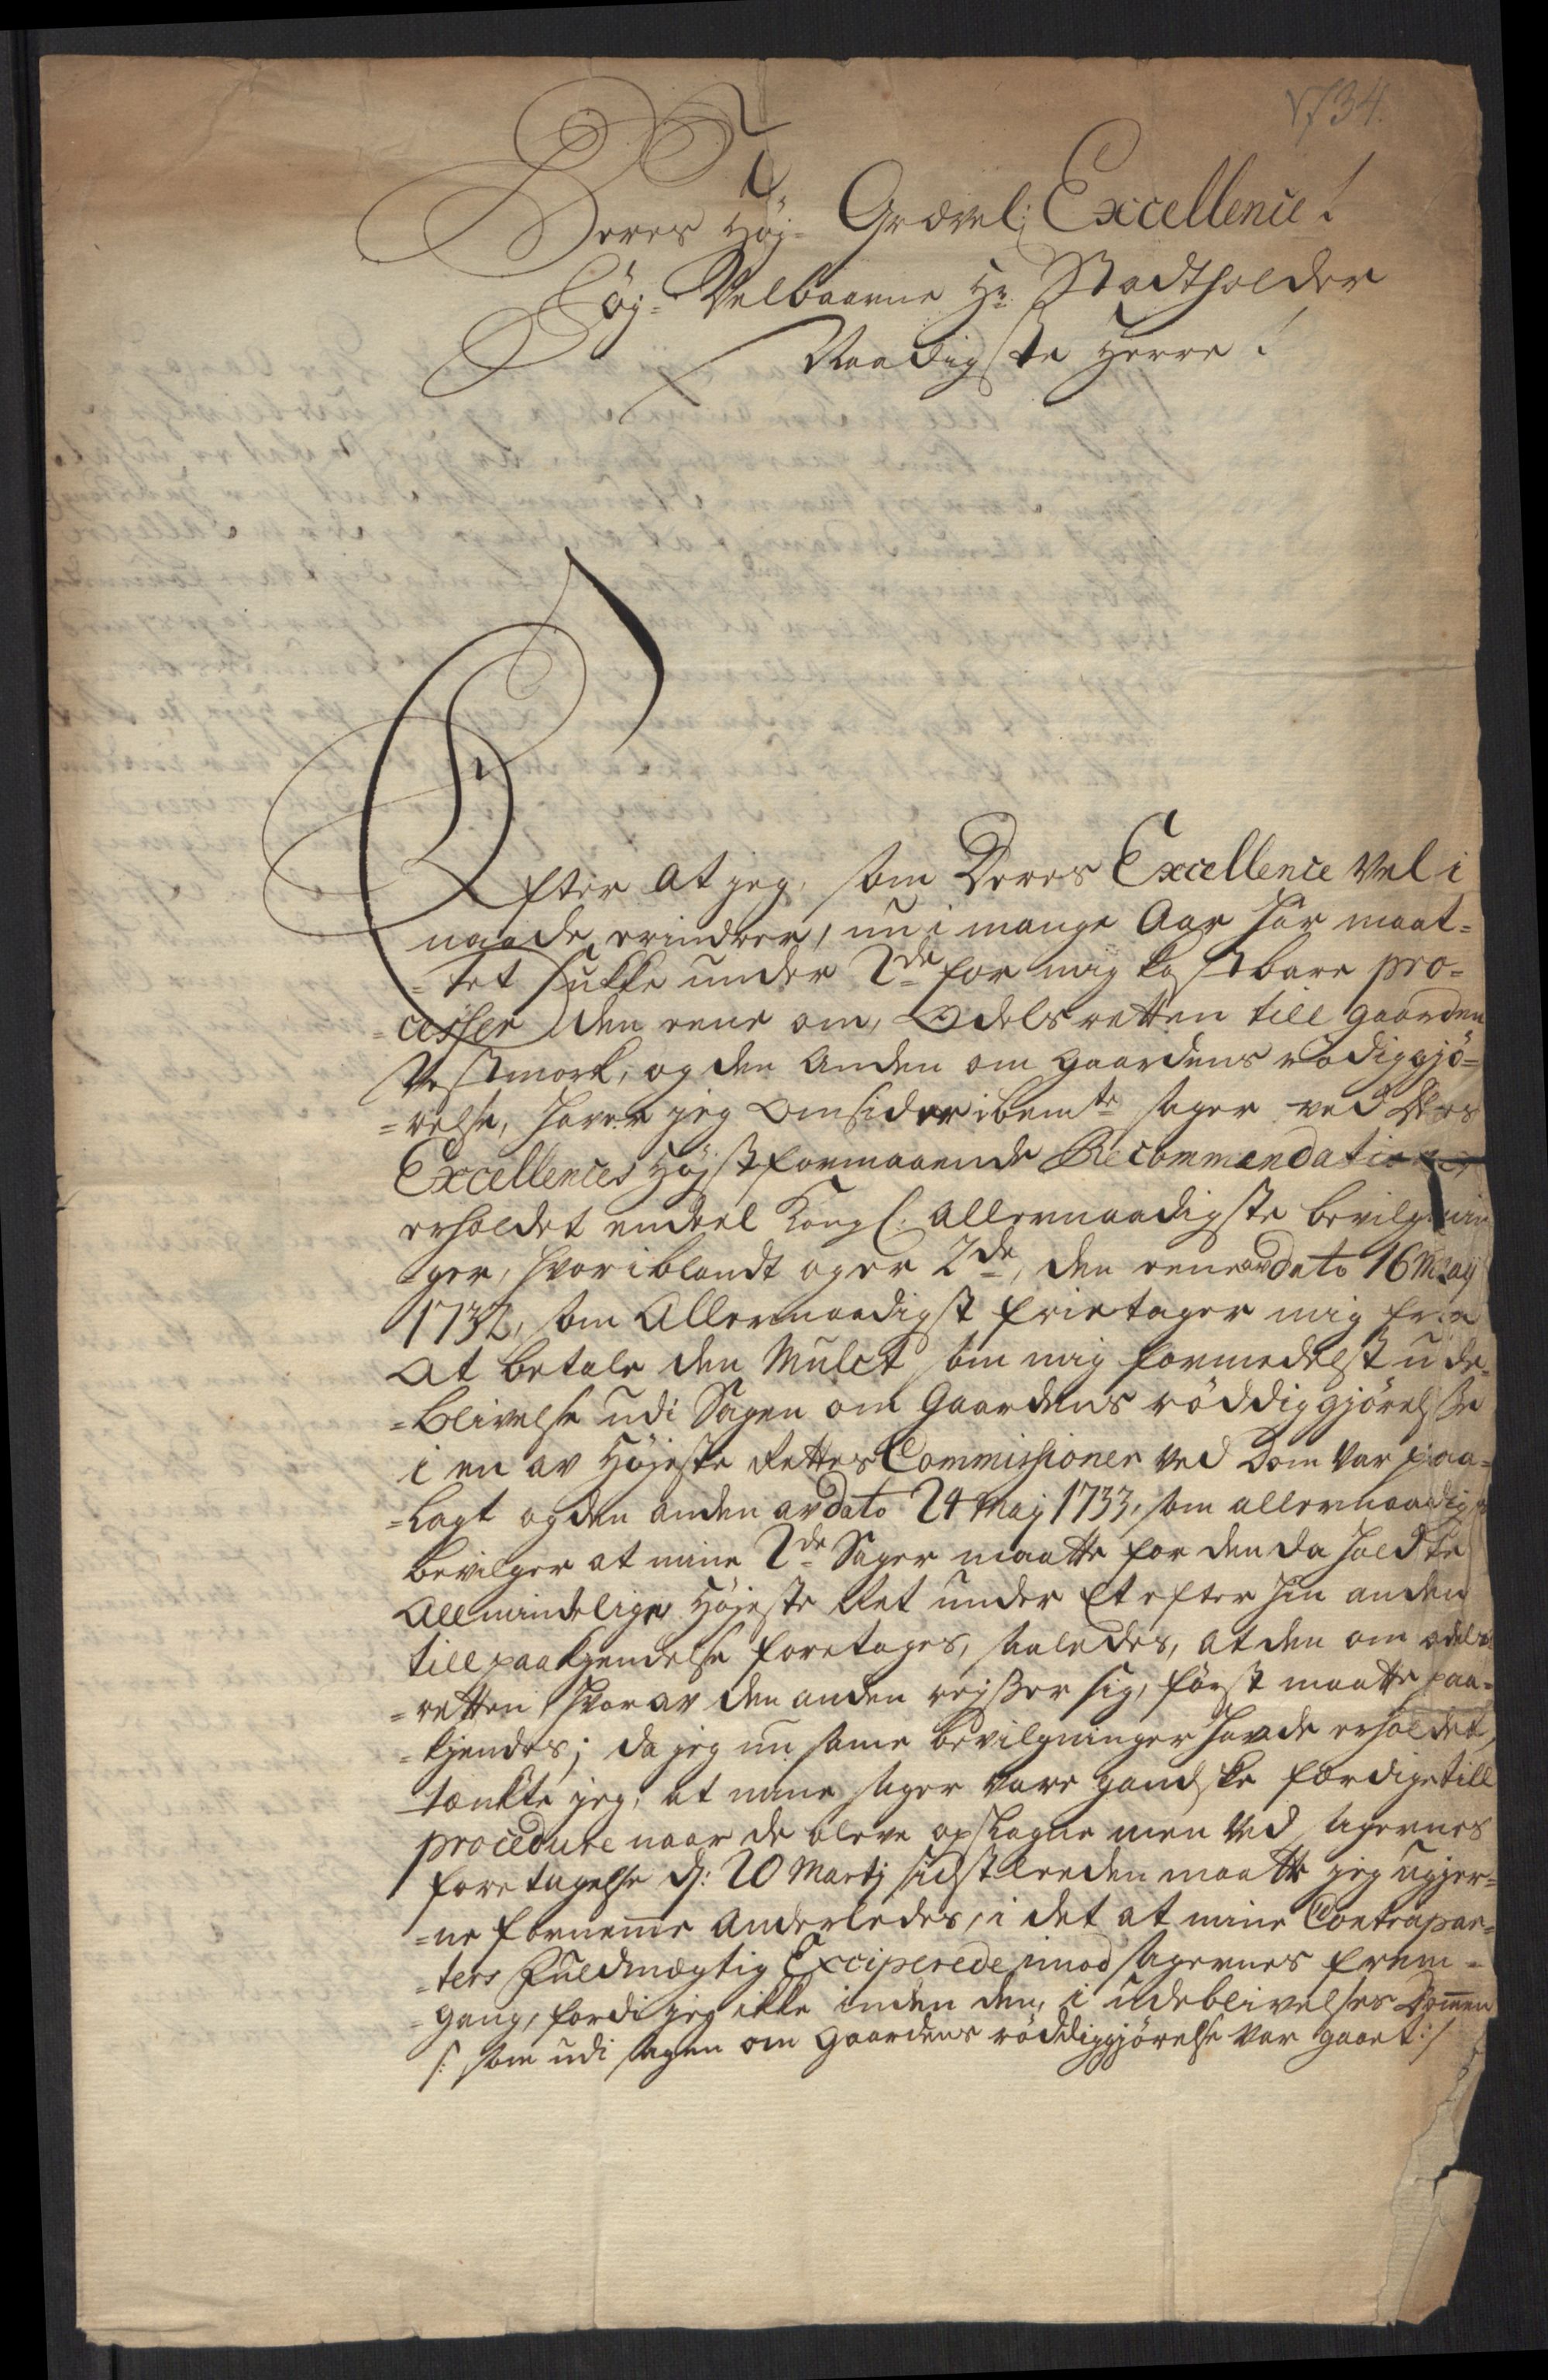 1734.
Deres Høj- Grævel: Excellence!
Høj- Velbaarne Hr: Stadtholder
Naadigste Herre!
Efter at jeg, som Deres Excellence vel i
naade erindrer, nu i mange Aar har maat=
=tet sukke under 2de for mig kostbare pro=
=cesser den eene om, Odelsretten till gaarden
Vestmork, og den Anden om gaardens rødiggjö=
=relse, haver jeg Omsider ibemte sager ved Deres
Excellences Højstformaaende Recommendationer
erholdet endeel Kongl: Allernaadigste bevilgnin
=ger, hvoriblandt og er 2de, den eene av dato 16 May
1732, som Allernaadigst frietager mig fra
At betale den Mulct som mig formedelst ude=
=blivelse udi Sagen om Gaardens röddiggjörelsse
i en av Höjeste Rettes Commissioner ved Dom var paa=
=lagt og den anden av dato 24 Maj 1733, som allernaadigst
bevilger at mine 2de Sager maatte for den da holdte
Allmindelige Højeste Ret under Et efter hin anden
till paakjendelse foretages, saaledes, at den om odels
=retten hvorav den anden rejsser sig, först maatte paa=
=kjendes; da jeg nu same bevilgninger havde erholdet,
tænkte jeg, at mine sager vare gandske færdige till
procedure naar de bleve opslagne men ved sagernes
foretagelse d: 20 Martj sidstleeden maatte jeg ugjer=
=ne fornemme Anderledes, i det at mine Contrapar=
=ters Fuldmægtig Exciperede imod sagernes frem=
=gang, fordi jeg ikke inden den, i udeblivelses Dommen
/: som udi sagen om Gaardens röddiggjörelse var gaaet :/